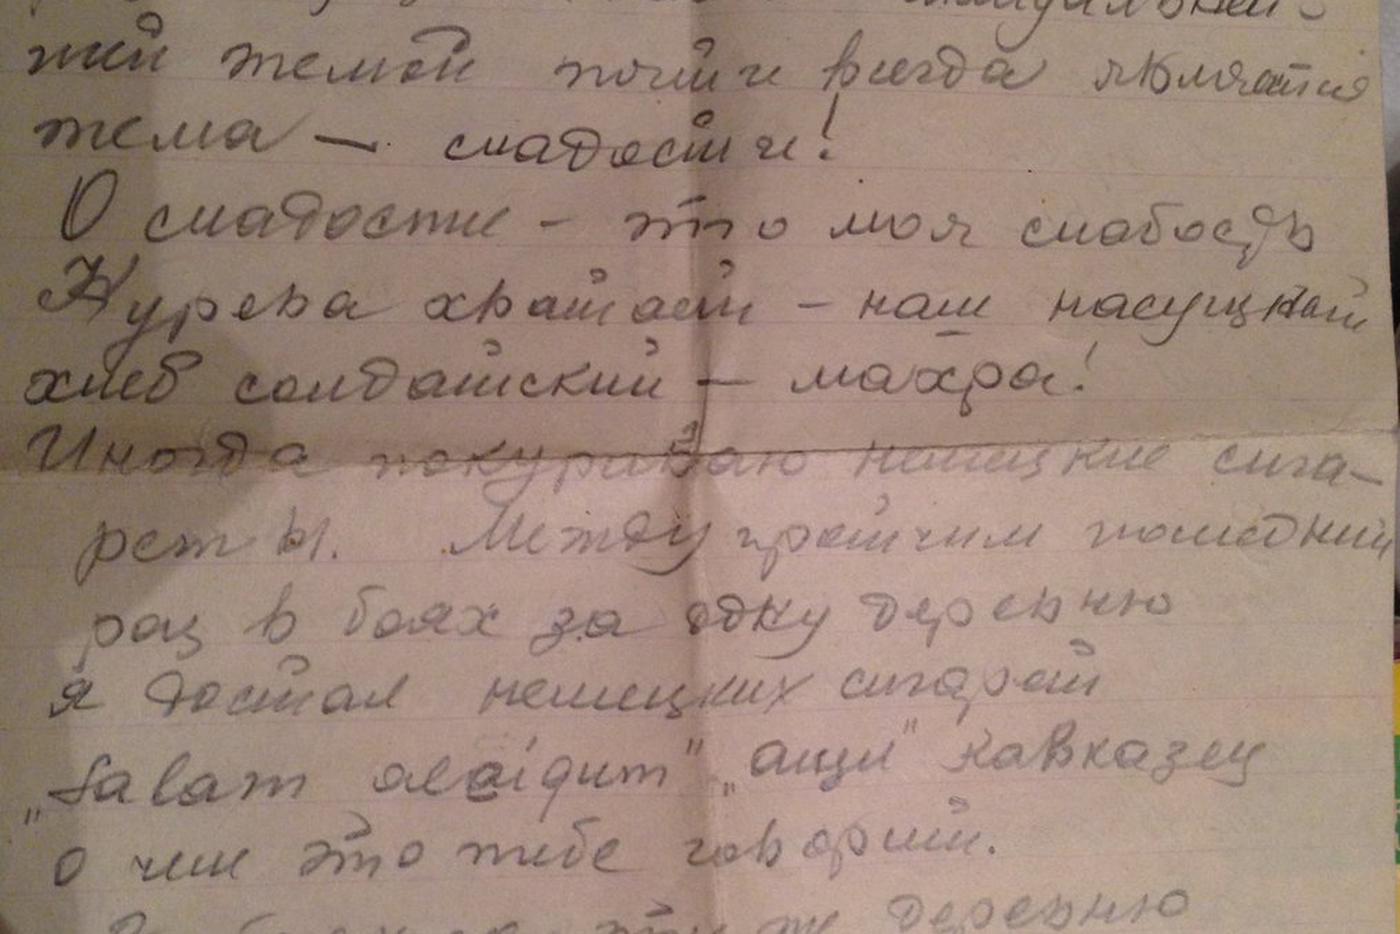 шей темой почти всегда является
тема — сладости!
О сладости - это моя слабость
Курева хватает - наш насущный
хлеб солдатский — махра!
Иногда покуриваю немецкие сига-
реты. Между прочим последний
раз в боях за одну деревню
я достал немецких сигарет
„Salam aleiqum" „ащи" кавказец
о чем это тебе говорит.
эту же деревню